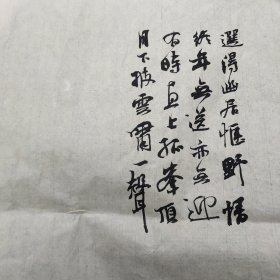 選得幽居惬野情
終年無送亦無迎
有時直上孤峯頂
月下披雲嘯一聲